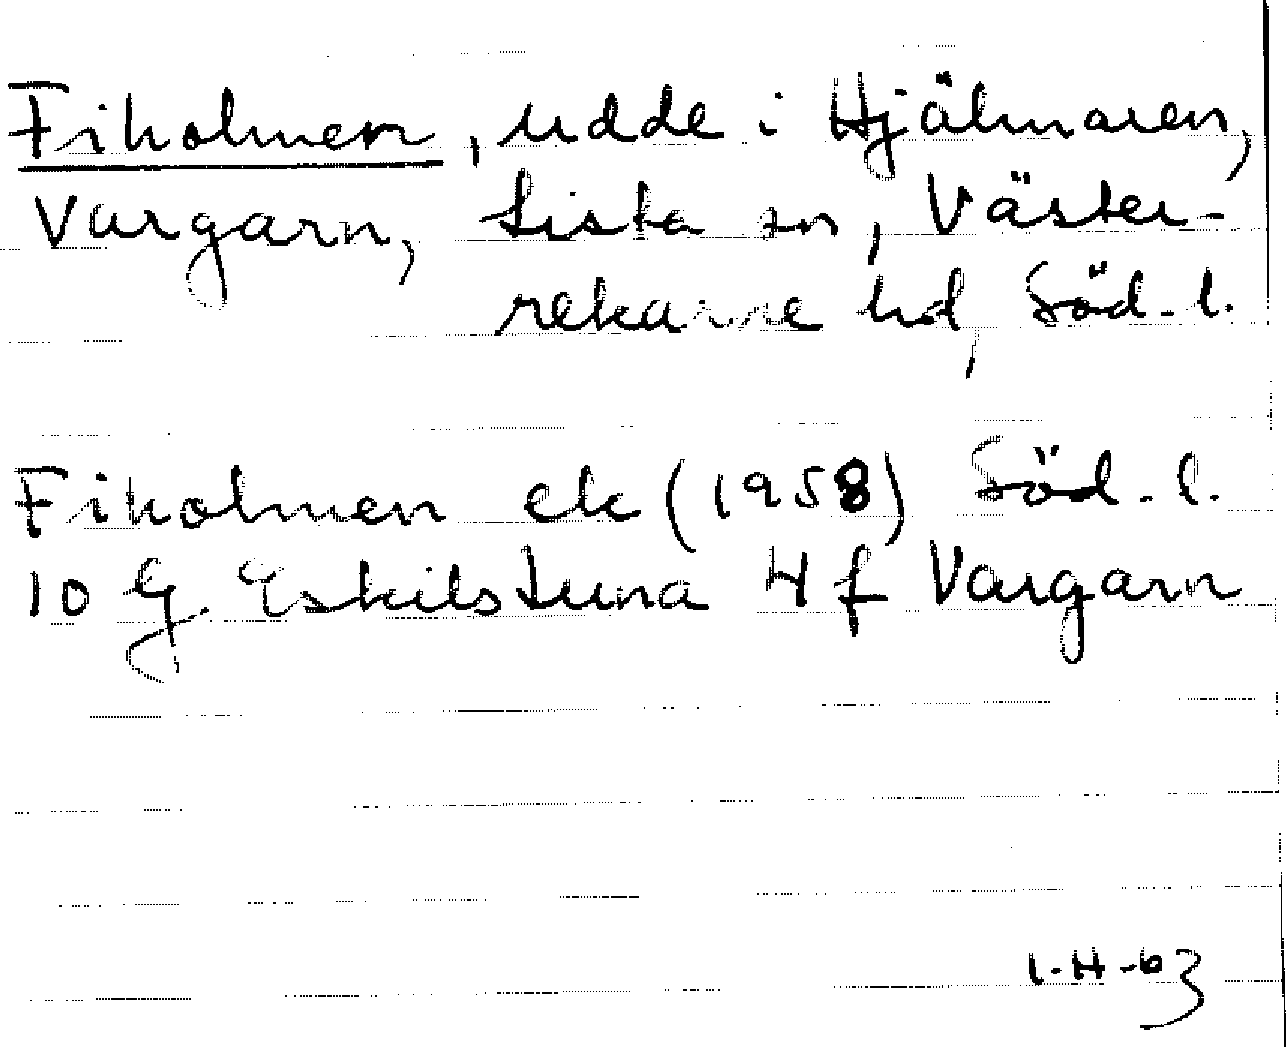 Fiholmen, udde i Hjälmaren,
Vargarn, Lista sn, Väster-
rekarne hd, Söd. l.
Fiholmen ek (1958) Söd. l.
10 G Eskilstuna 4 f Vargarn
I.H-63